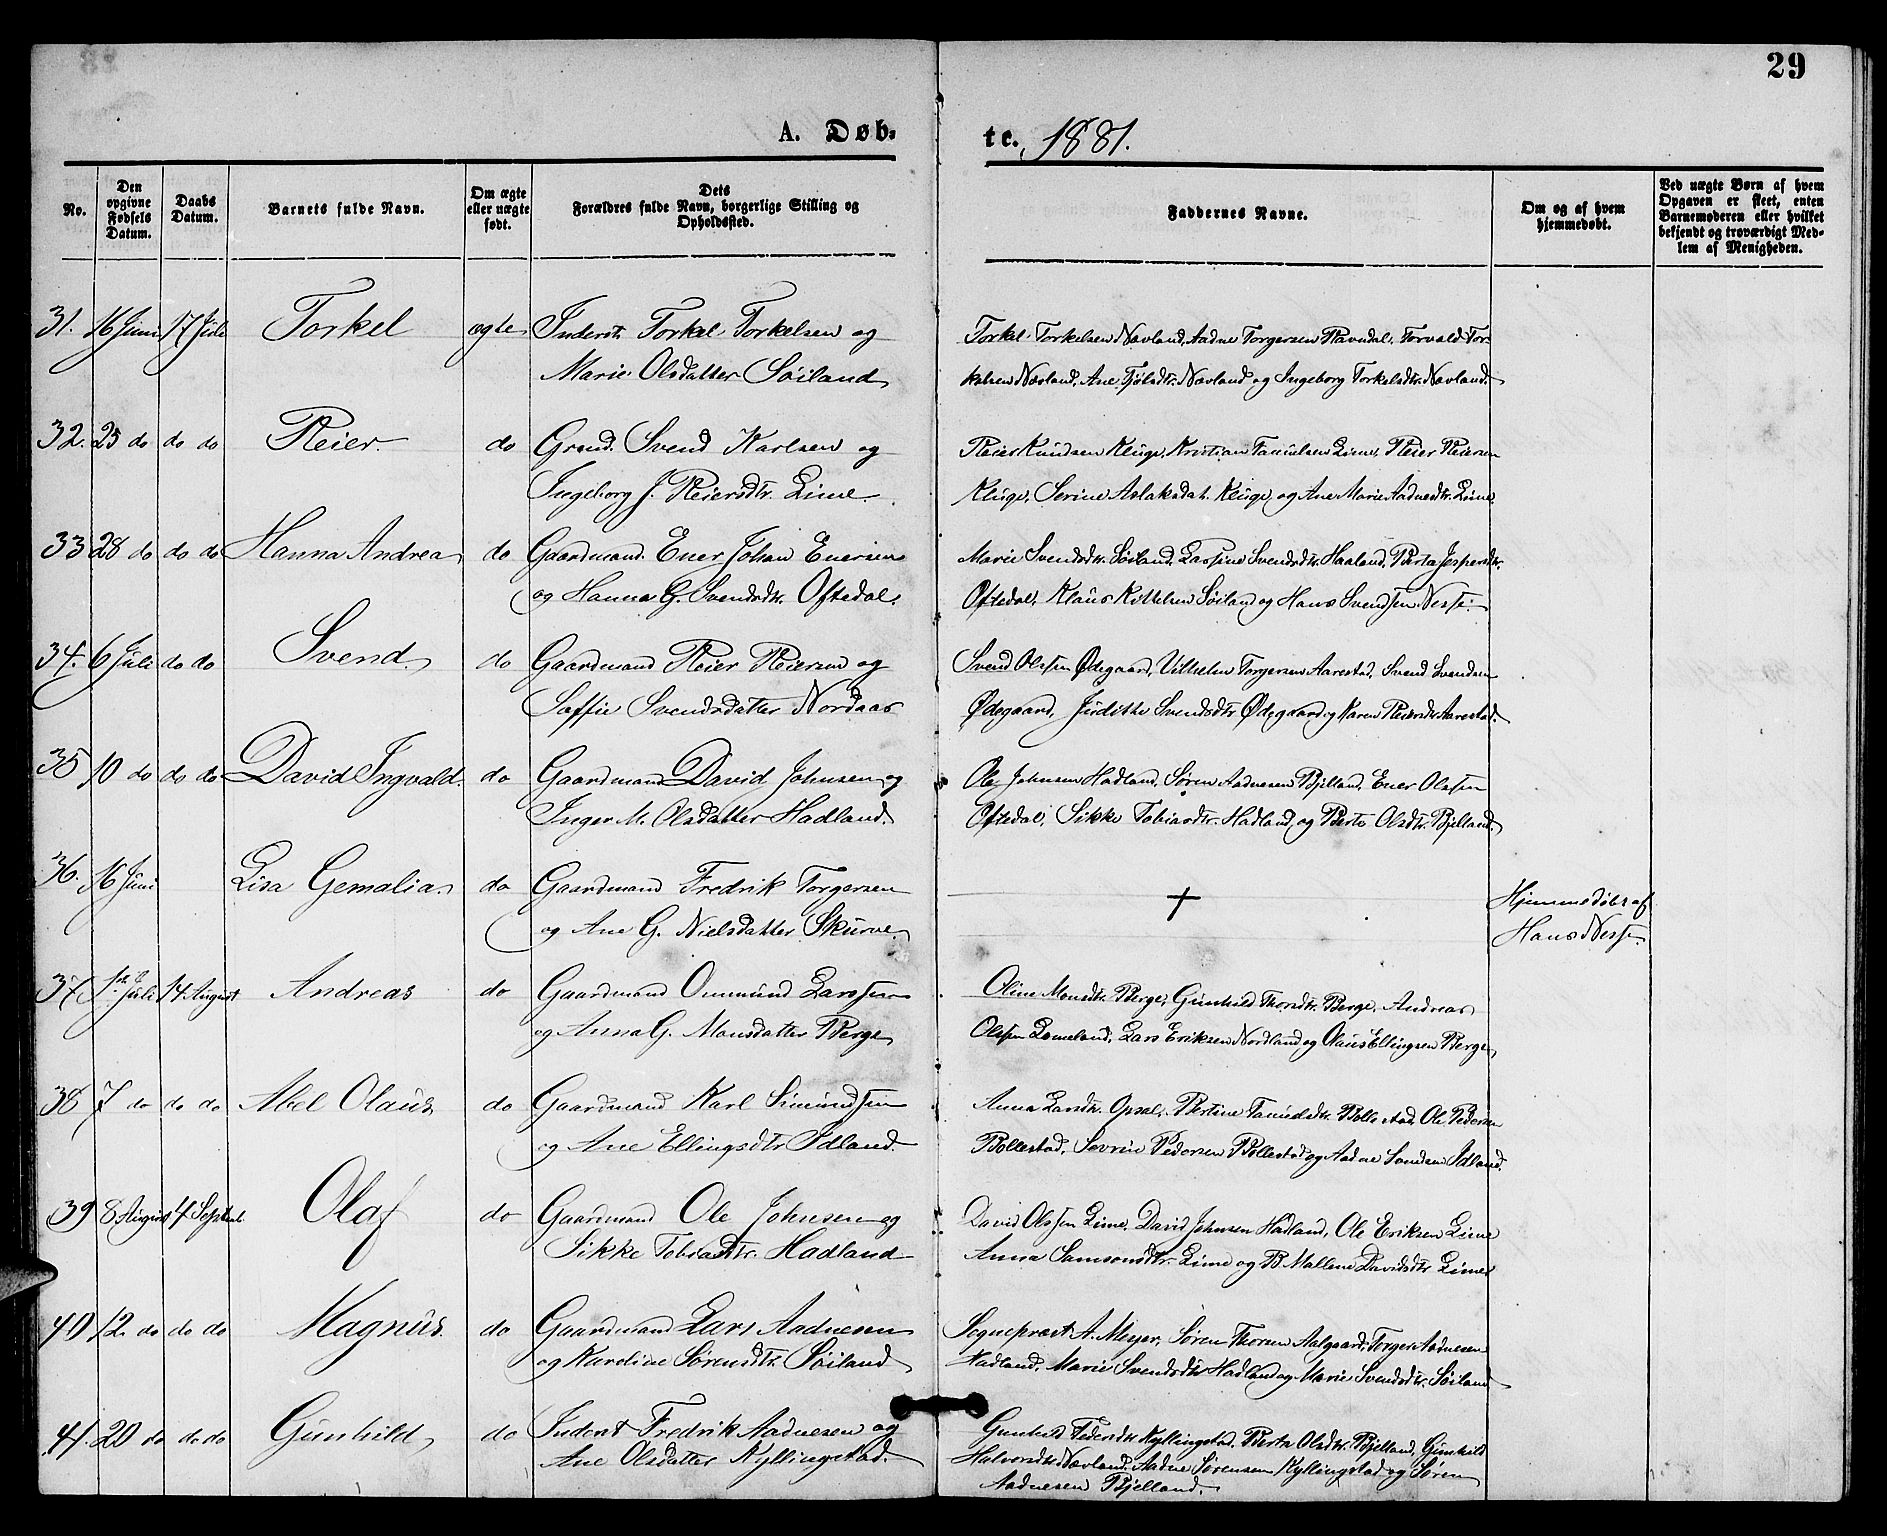 29
A. Døb-
te. 1881.
No.
Den
opgivne
Fødsels
Datum.
Daabs
Datum.
Barnets fulde Navn.
Om ægte
eller uægte
født.
Dets
Forældres fulde Navn, borgerlige Stilling og
Opholdssted.
Faddernes Navne.
Om og af hvem
hjemmedøbt.
Ved uægte Børn af hvem
Opgaven er skeet, enten
Barnemoderen eller hvilket
bekjendt og troværdigt Med-
lem af Menigheden.
31. 16 Juni 17 Juli Torkel ægte Inderst Torkel Torkelsen og
Marie Olsdatter Søiland
Torkel Torkelsen Navland, Aadne Torgersen Ravndal, Torvald Tor-
kelsen Navland, Ane Navland og Ingeborg Torkelsdtr. Navland.
32. 25 do do do Reier do Grmd. Svend Karlsen og
Ingeborg J. Reiersdtr. Lime.
Reier Knudsen Kluge, Kristian Lime, Reier Reiersen
Kluge, Serine Aslaksdat. Kluge, og Ane Marie Aadnesdtr. Lime
33 28 do do do Hanna Andrea do Gaardmand Ener Johan Enersen
og Hanna G. Svendsdtr. Oftedal.
Marie Svendsdtr. Søiland, Lassine Svendsdtr. Haaland, Berta Jespersdtr.
Oftedal, Klaus Kittelsen Søiland og Hans Svendsen Nesse.
34. 6 Juli do do Svend do Gaardmand Reier Reiersen og
Soffie Svendsdatter Nordaas
Svend Olssen Ødegaard, Vilhelm Torgersen Aarestad, Svend Svendsen
Ødegaard, Judithe Svendsdtr Ødegaard og Karen Reiersdtr. Aarestad.
35 10 do do do David Ingvald. do Gaardmand David Johnsen og
Inger M. Olsdatter Hadland.
Ole Johnsen Hadland, Søren Aadnesen Bjelland, Ener Olssen
Oftedal, Sikke Tobiasdtr. Hadland, og Berte Olsdtr. Bjelland.
36. 16 Juni Lisa Gemalia. do Gaardmand Fredrik Torgersen
og Ane G. Nielsdatter Skurve
+
Hjemmedøbt af
Hans Nesse.
37 1ste Juli 14 August Andreas do Gaardmand Ommund Larssen
og Anna G. Monsdatter Berge
Oline Monsdtr. Berge, Gunhild Thorsdtr. Berge, Andreas
Olssen Lomeland, Lars Eriksen Nordland og Olaus Ellingsen Berge
38 7 do do do Abel Olaus do Gaardmand Karl Simundssen
og Ane Ellingsdtr Idland.
Anna Larsdtr. Opsal, Bertine Bollestad, Ole Pedersen
Bollestad, Sovrin Pedersen Bollestad og Aadne Idland.
39 8 August 4 Septemb. Olaf do Gaardmand Ole Johnsen og
Sikke Tobiasdtr. Hadland
David Olssen Lime, David Johnsen Hadland, Ole Eriksen Lime
Anna Samsonsdtr. Lime og B. Mallene Davidsdtr Lime
40 12. do do do Magnus. do Gaardmand Lars Aadnesen
og Karoline Sørensdtr. Søiland
Sogneprest A. Meyer, Søren Thorsen Aalgaard, Torger Aadnesen
Hadland, Marie Svendsdtr Hadland og Marie Svendsdtr. Søiland
41. 20 do do do Gunhild do Inderst Fredrik Aadnesen og
Ane Olsdatter Kyllingstad.
Gunhild Pedersdtr Kyllingstad, Berta Olsdtr. Bjelland, Gunhild
Halvorsdtr Navland, Aadne Sørensen Kyllingstad og Søren
Aadnesen Bjelland.